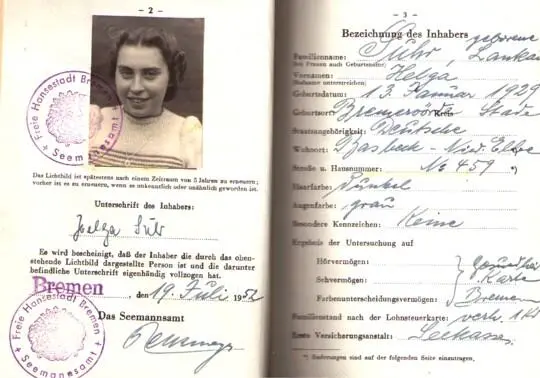 — 2 —
Freie Hansestadt Bremen
Seemannsamt
Das Lichtbild ist spätestens nach einem Zeitraum von 5 Jahren zu erneuern;
vorher ist es zu erneuern, wenn es unkenntlich oder unähnlich geworden ist.
Unterschrift des Inhabers:
Helga Suhr
Es wird bescheinigt, daß der Inhaber die durch das oben-
stehende Lichtbild dargestellte Person ist und die darunter
befindliche Unterschrift eigenhändig vollzogen hat.
Bremen, den 19. Juli 1952
Das Seemannsamt
Freie Hansestadt Bremen
Seemannsamt
— 3 —
Bezeichnung des Inhabers geborene
Familienname: Suhr, Lankau
(bei Frauen auch Geburtsname)
Vornamen: Helga
(Rufname unterstreichen)
Geburtsdatum: 13. Januar 1929
Geburtsort: Bremervörde Kreis Stade
Staatsangehörigkeit: Deutsche
Wohnort: Basbeck - Nied. Elbe
Straße u. Hausnummer: No 459 *)
Haarfarbe: dunkel
Augenfarbe: grau
Besondere Kennzeichen: Keine
Ergebnis der Untersuchung auf
Hörvermögen: Gesundheits
Sehvermögen: Karte
Farbenunterscheidungsvermögen: Bremen
Familienstand nach der Lohnsteuerkarte: verh.
Erste Versicherungsanstalt: Seekasse
*) Änderungen sind auf der folgenden Seite einzutragen.